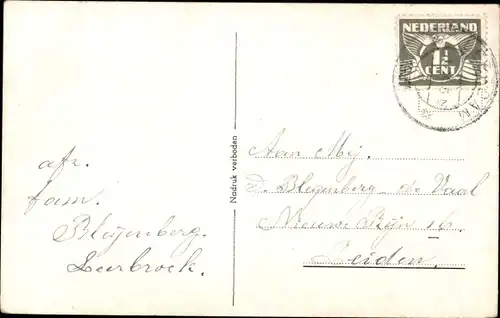 NEDERLAND
1½
CENT
afz.
fam.
Bleijenberg.
Leerbroek.
Nadruk verboden
Aan Mej.
D. Bleijenberg - de Vaal
Nieuwe Rijn 16
Leiden.